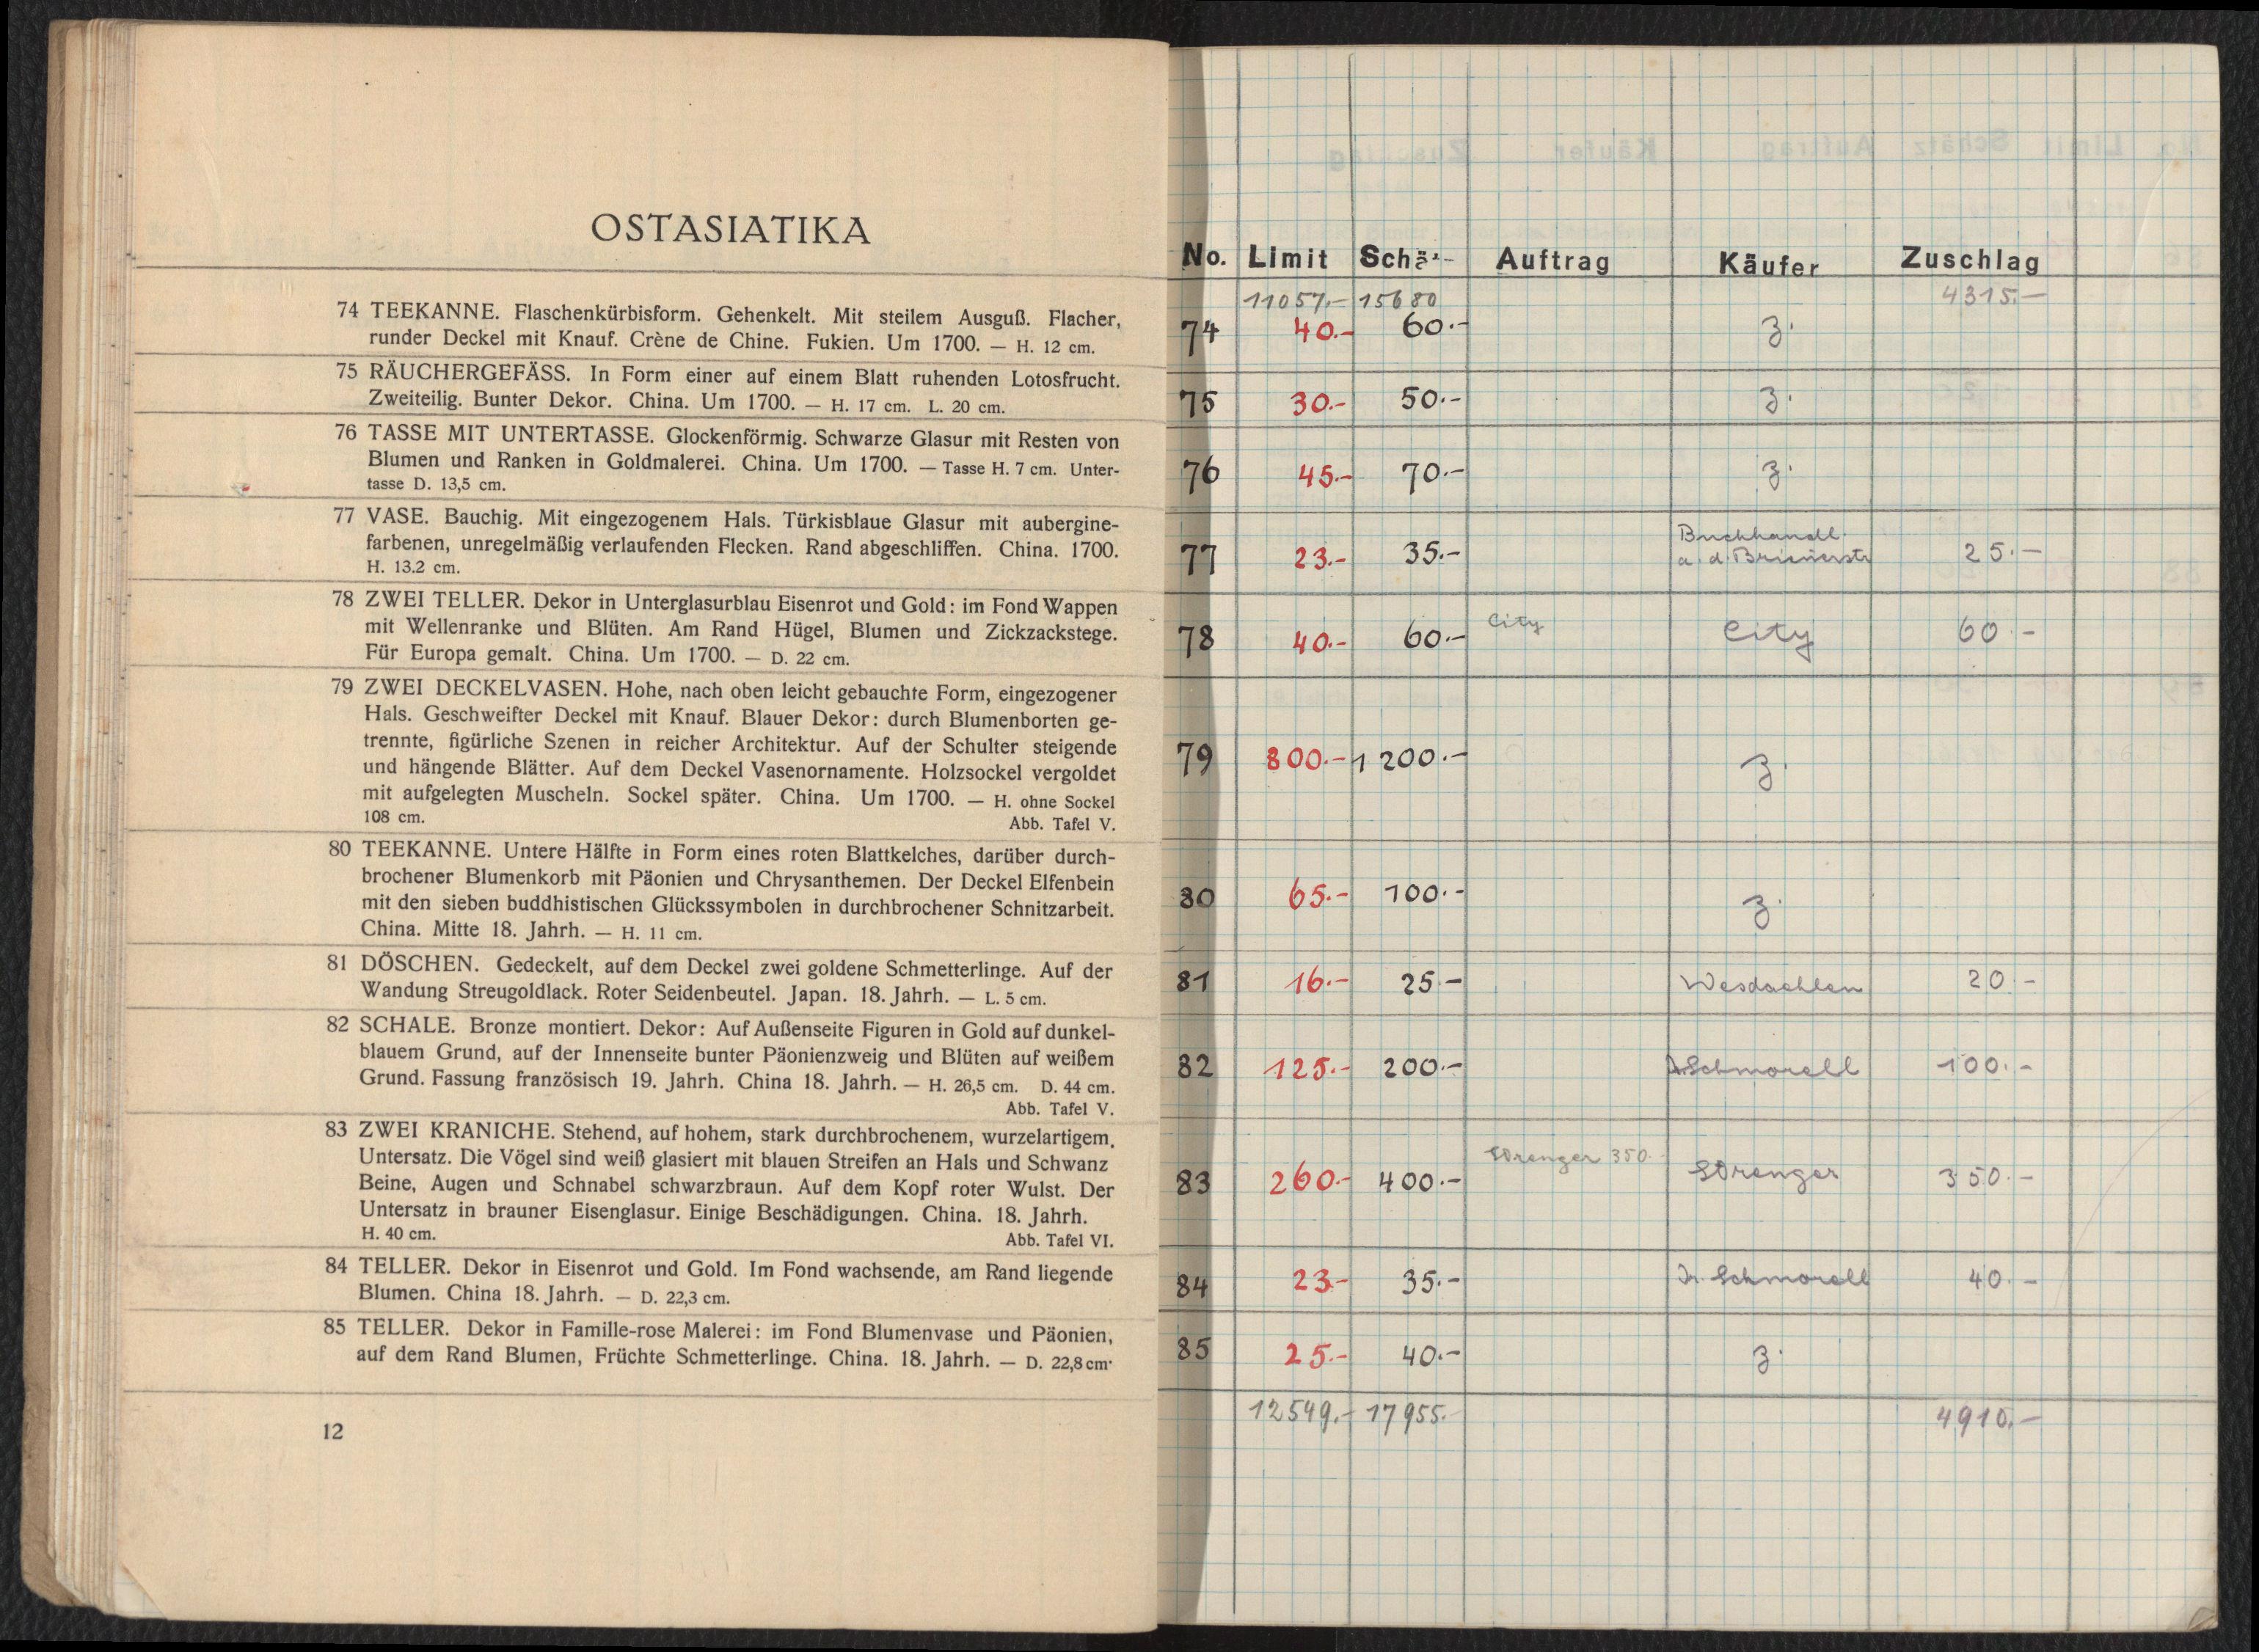 OSTASIATIKA
74 TEEKANNE. Flaschenkürbisform. Gehenkelt. Mit steilem Ausguß. Flacher,
runder Deckel mit Knauf. Crène de Chine. Fukien. Um 1700. — H. 12 cm.
75 RÄUCHERGEFÄSS. In Form einer auf einem Blatt ruhenden Lotosfrucht.
Zweiteilig. Bunter Dekor. China. Um 1700. — H. 17 cm. L. 20 cm.
76 TASSE MIT UNTERTASSE. Glockenförmig. Schwarze Glasur mit Resten von
Blumen und Ranken in Goldmalerei. China. Um 1700. — Tasse H. 7 cm. Unter-
tasse D. 13,5 cm.
77 VASE. Bauchig. Mit eingezogenem Hals. Türkisblaue Glasur mit aubergine-
farbenen, unregelmäßig verlaufenden Flecken. Rand abgeschliffen. China. 1700.
H. 13.2 cm.
78 ZWEI TELLER. Dekor in Unterglasurblau Eisenrot und Gold: im Fond Wappen
mit Wellenranke und Blüten. Am Rand Hügel, Blumen und Zickzackstege.
Für Europa gemalt. China. Um 1700. — D. 22 cm.
79 ZWEI DECKELVASEN. Hohe, nach oben leicht gebauchte Form, eingezogener
Hals. Geschweifter Deckel mit Knauf. Blauer Dekor: durch Blumenborten ge-
trennte, figürliche Szenen in reicher Architektur. Auf der Schulter steigende
und hängende Blätter. Auf dem Deckel Vasenornamente. Holzsockel vergoldet
mit aufgelegten Muscheln. Sockel später. China. Um 1700. — H. ohne Sockel
108 cm. Abb. Tafel V.
80 TEEKANNE. Untere Hälfte in Form eines roten Blattkelches, darüber durch-
brochener Blumenkorb mit Päonien und Chrysanthemen. Der Deckel Elfenbein
mit den sieben buddhistischen Glückssymbolen in durchbrochener Schnitzarbeit.
China. Mitte 18. Jahrh. — H. 11 cm.
81 DÖSCHEN. Gedeckelt, auf dem Deckel zwei goldene Schmetterlinge. Auf der
Wandung Streugoldlack. Roter Seidenbeutel. Japan. 18. Jahrh. — L. 5 cm.
82 SCHALE. Bronze montiert. Dekor: Auf Außenseite Figuren in Gold auf dunkel-
blauem Grund, auf der Innenseite bunter Päonienzweig und Blüten auf weißem
Grund. Fassung französisch 19. Jahrh. China 18. Jahrh. — H. 26,5 cm. D. 44 cm.
Abb. Tafel V.
83 ZWEI KRANICHE. Stehend, auf hohem, stark durchbrochenem, wurzelartigem.
Untersatz. Die Vögel sind weiß glasiert mit blauen Streifen an Hals und Schwanz
Beine, Augen und Schnabel schwarzbraun. Auf dem Kopf roter Wulst. Der
Untersatz in brauner Eisenglasur. Einige Beschädigungen. China. 18. Jahrh.
H. 40 cm. Abb. Tafel VI.
84 TELLER. Dekor in Eisenrot und Gold. Im Fond wachsende, am Rand liegende
Blumen. China 18. Jahrh. — D. 22,3 cm.
85 TELLER. Dekor in Famille-rose Malerei: im Fond Blumenvase und Päonien,
auf dem Rand Blumen, Früchte Schmetterlinge. China. 18. Jahrh. — D. 22,8 cm.
12
No. Limit Schä Auftrag Käufer Zuschlag
11057.- 15680 4315.-
74 40.- 60.- z.
75 30.- 50.- z.
76 45.- 70.- z.
77 23.- 35.- Buchhandl. a. d. Briennerstr 25.-
78 40.- 60.- City City 60.-
79 800.- 1200.- z.
80 65.- 100.- z.
81 16.- 25.- 20.-
82 125.- 200.- Schmorell 100.-
83 260.- 400.- Strenger 350.- Strenger 350.-
84 23.- 35.- Dr. Schmorell 40.-
85 25.- 40.- z.
12549.- 17955.- 4910.-